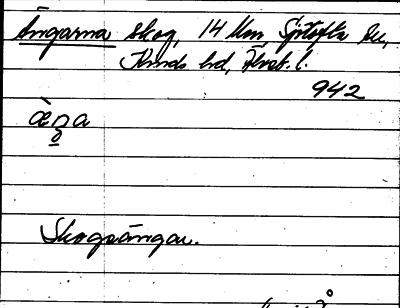 Ängarna skog, 14 km Sjötofta sn,
Kinds hd, Älvsb. l.
942
Skogsängar.